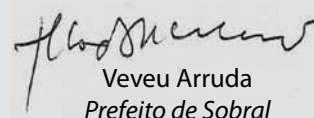 Veveu Arruda
Prefeito de Sobral